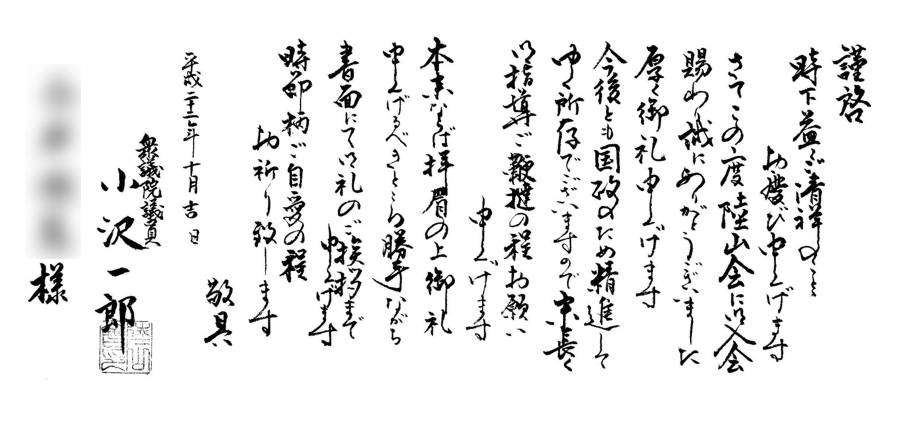 謹啓
時下益々ご清祥のことと
お慶び申し上げます
さてこの度陸山会に御入会
賜わり誠にありがとうございました
厚く御礼申し上げます
今後とも国政のため精進して
ゆく所存でございますので末長く
御指導ご鞭撻の程お願い
申し上げます
本来ならば拝眉の上御礼
申し上げるべきところ勝手ながら
書面にて御礼のご挨拶まで
申し上げます
時節柄ご自愛の程
お祈り致します
敬具
平成二十二年十月吉日
衆議院議員
小沢一郎
様